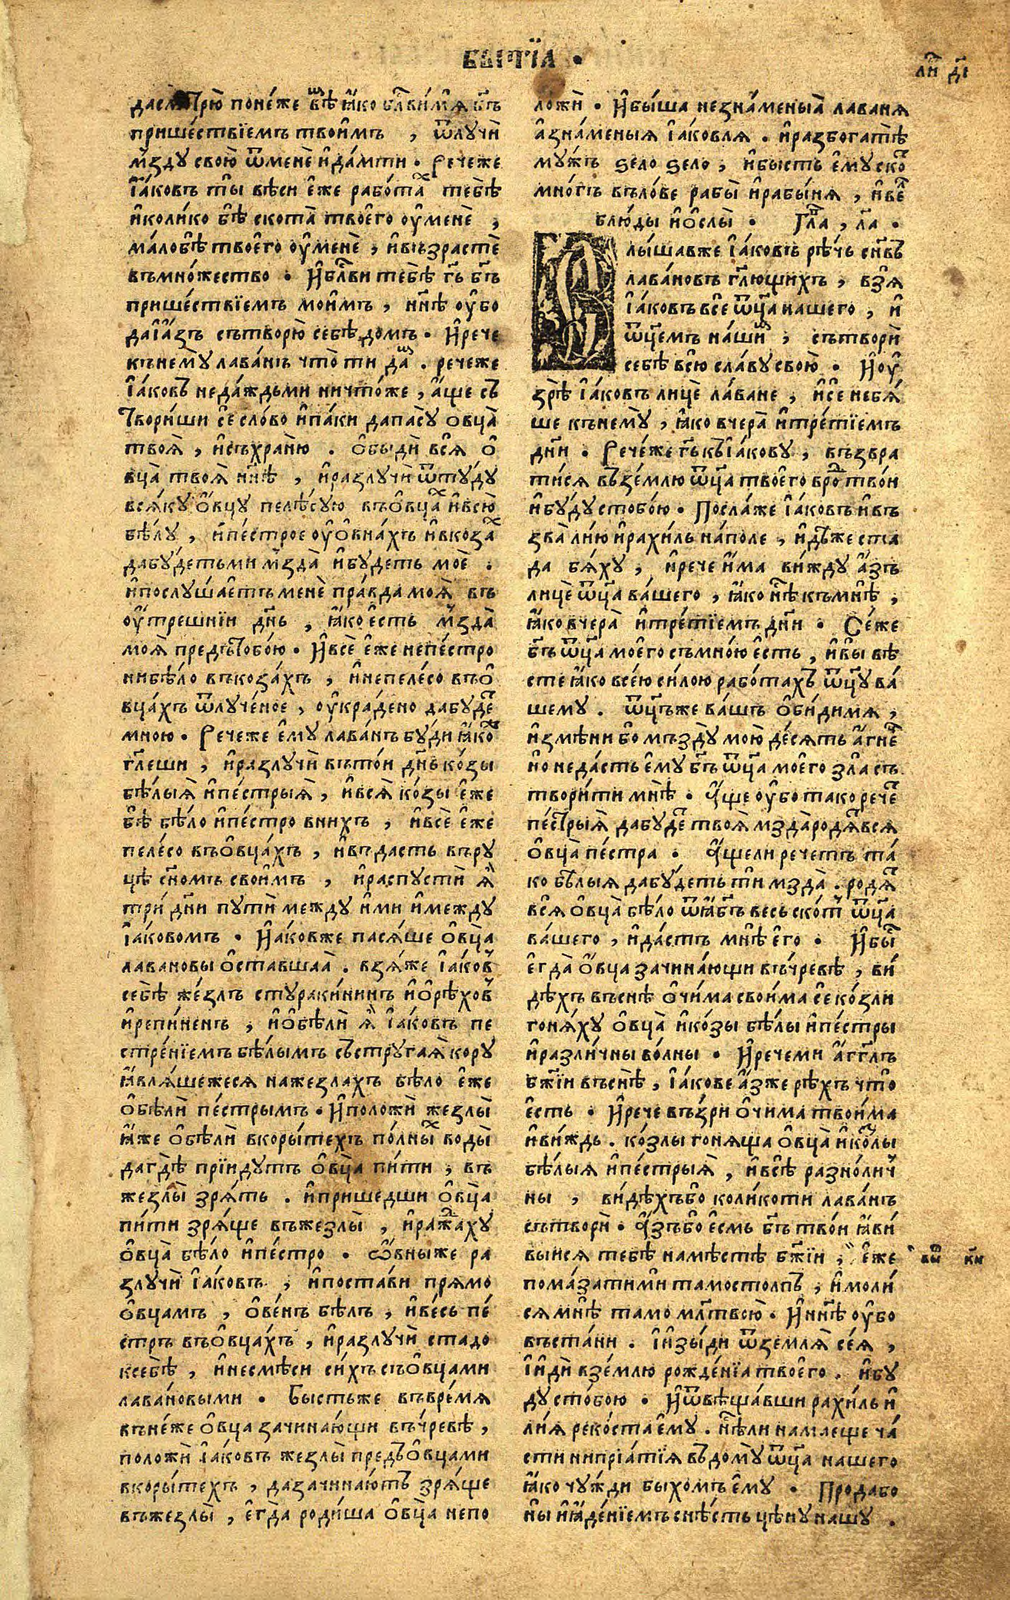 БЫТЇА ·
ли͠ д҃і
пришествїемъ твоимъ , ѿлучи
мъзду свою ѿмене идамти · Речеже
Їаковъ ты вѣси еже работа тебѣ
иколико бѣ скота твоего оумене ,
малобѣ твоего оумене , ивъзрасте
въмножество · Иблг҃ви тебѣ г҃ь б҃гъ
пришествїемъ моимъ , нн҃ѣ оубо
даіазъ сътворю себѣ домъ · Ирече
кънему лаванъ что ти да . речеже
Їаковъ недаждьми ничтоже , аще съ
твориши се слово ипаки дапасу овца
твоя , исъхраню . обыди вся о
вца твоя нн҃ѣ , иразлучи ѿтуду
всяку овцу пелесую въовца ивсю
бѣлу , ипестрое оуовнахъ ивкоза
дабудетьми мзда ибудеть мое .
ипослушаетъ мене правда моя въ
оутрешнїи дн҃ь , ꙗко есть мзда
моя предътобою · Ивсе еже непестро
нибѣло въкозахъ , инепелесо въо
вцахъ ѿлученое , оукрадено дабуде
мною · Речеже ему лаванъ буди ꙗко
гл҃еши , иразлучи вътои дн҃ь козы
бѣлыя ипестрыя , ився козы еже
бѣ бѣло ипестро внихъ , ивсе еже
пелесо въовцахъ , ивъдасть въру
цѣ сн҃омъ своимъ , ираспусти я
три дн҃и пути между ими имежду
Їаковомъ · Иаковже пасяше овца
лавановы оставшаа . взяже Їаков
себѣ жезлъ стуракининъ иорѣхов
ирепиненъ , иобѣли я Їаковъ пе
стренїемъ бѣлымъ състругая кору
ꙗвляшежеся нажезлахъ бѣло еже
обѣли пестрымъ · Иположи жезлы
ꙗже обѣли вкорытехъ полны воды
дагдѣ прїидутъ овца пити , въ
жезлы зрять . ипришедши овца
пити зряще въжезлы , иражаху
овца бѣло ипестро · ѡвныже ра
злучи Їаковъ , ипостави прямо
овцамъ , овенъ бѣлъ , ивесь пе
стръ въовцахъ , иразлучи стадо
ксебѣ , инесмеси сихъ съовцами
лавановыми · Бысть же въвремя
вънеже овца зачинающи въчревѣ ,
положи Їаковъ жезлы предъовцами
вкорытехъ , дазачинаютъ зряще
въжезлы , егда родиша овца непо
ложи · Ибыша незнаменыа лаваня
азнаменыя Їаковля · иразбогатѣ
мужъ ѕело ѕело , ибысть ему ско
многъ въловe рабы ирабыня , иве
блюды иослы · Гл҃а , л҃а ·
лышавже Їаковъ рѣчь сн҃въ
лавановъ гл҃ющихъ , взя
Їаковъ все ѿц҃а нашего , и
ѿц҃емъ наши , сътвори
себѣ всю славу свою · Иоу
зрѣ Їаковъ лице лаване , исе небя
ше кънему , ꙗко вчера итретїемъ
дн҃и · Речеже г҃ь къЇакову , възвра
тися въземлю ѿц҃а твоего бро твои
ибуду стобою · Послаже Їаковъ ивъ
зва лию ирахиль наполе , идѣже ста
да бяху , ирече има вижду азъ
лице ѿц҃а вашего , ꙗко нѣ къмнѣ ,
ꙗко вчера итретїемъ дн҃и · Сеже
б҃гъ ѿц҃а моего съмною есть , ивы вѣ
сте ꙗко всею силою работахъ ѿц҃у ва
шему . ѿц҃ъже вашъ обидимя ,
измени бо мъзду мою десять агне
ио недасть ему б҃гъ ѿц҃а моего зла съ
творити мнѣ · Аще оубо тако рече
пестрыя дабуде твоя мзда родя вся
овца пестра · Ащели речетъ та
ко бѣлыя дабудеть ти мзда . родя
вся овца бѣло ѿꙗ б҃гъ весь скотъ ѿц҃а
вашего , идастъ мнѣ его · Ибы
егда овца зачинающи въчревѣ , ви
дѣхъ въснѣ очима своима се козли
гоняху овца икозы бѣлы ипестры
иразличны волны · Иречеми агг҃лъ
бж҃їи въснѣ , Їакове азже рѣхъ что
есть · Ирече възри очима твоима
ивиждь . козлы гоняща овца икозлы
бѣлыя ипестрыя , ивсѣ разнолич
ны , видѣхъбо коликоти лаванъ
сътвори · Азъбо есмь б҃гъ твои ꙗви
выися тебѣ намѣстѣ бж҃їи , еже
помазатими тамостолпъ , имоли
ся мнѣ тамо мл҃твою · Инн҃ѣ оубо
въстани . Їизыди ѿземля сея ,
Їиди вземлю рожденїа твоего . ибу
ду стобою · Иѿвѣщавши рахиль и
лия рекоста ему . иѣли намаеще ча
сти нипрїатїя въдому ѿц҃а нашего
ꙗко чужди быхомъ ему · Продабо
ны иꙗденїемъ снѣсть цѣну нашу .